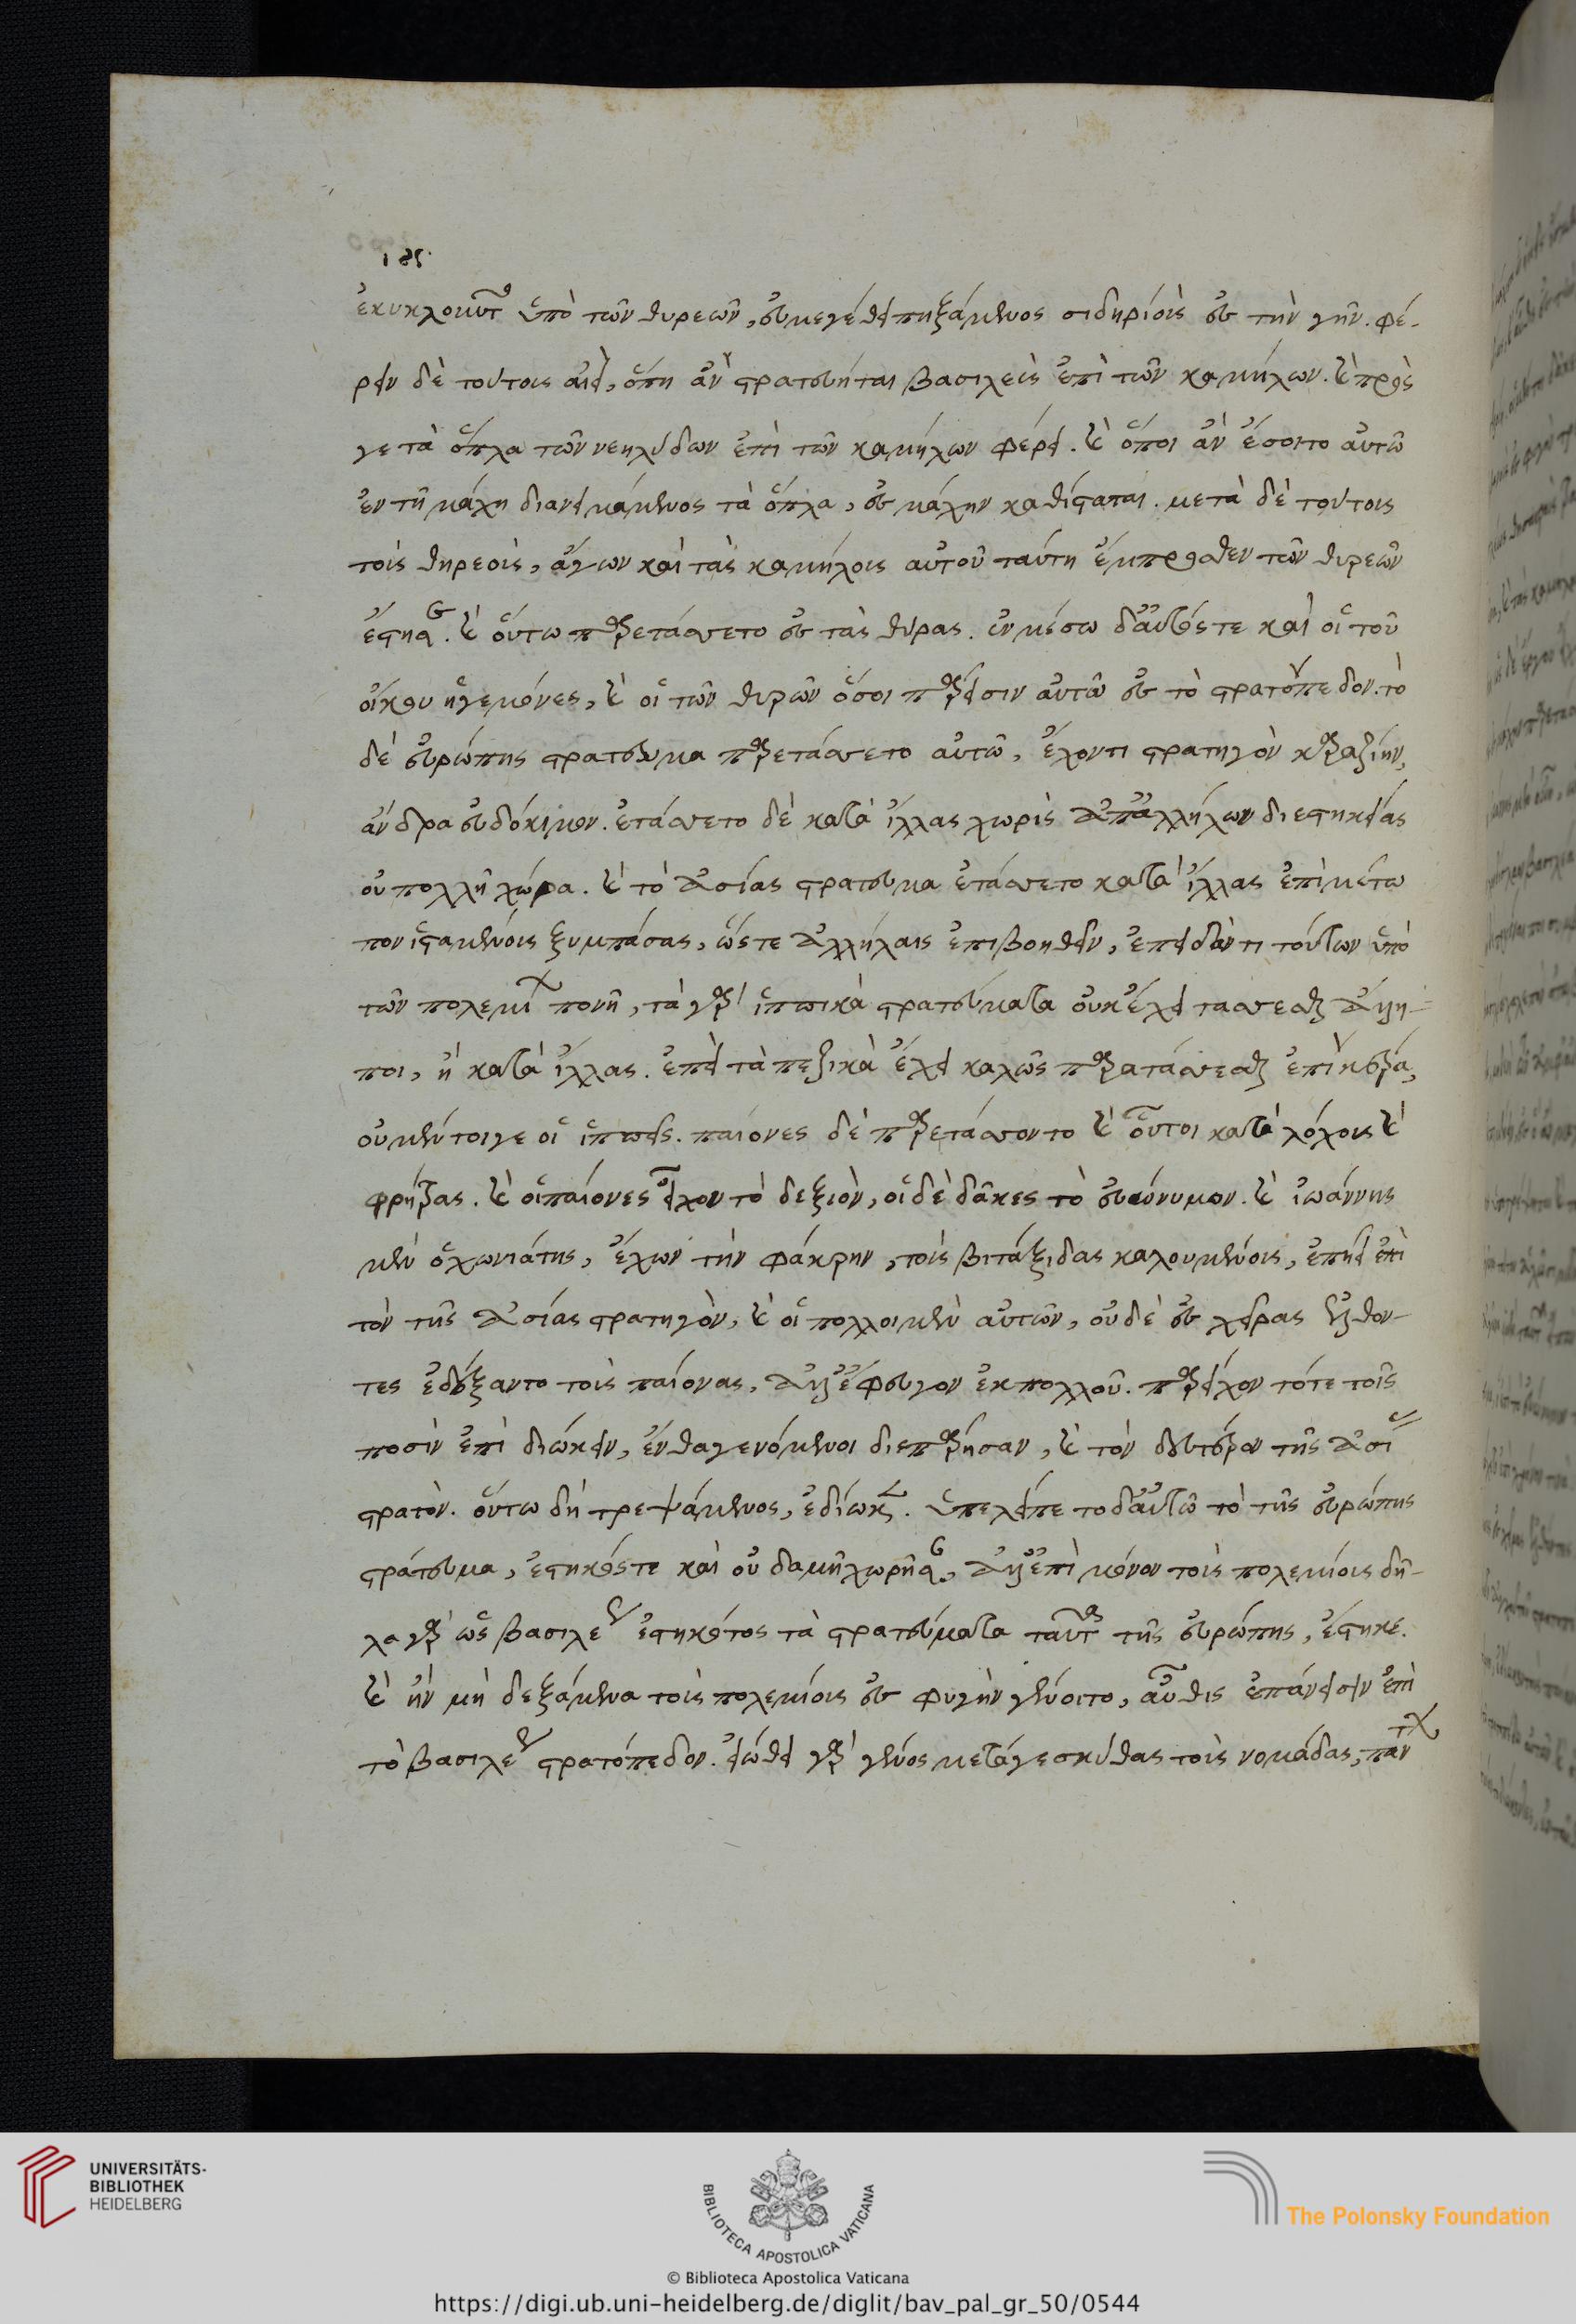 ἐκυκλοῦντο ὑπὸ τῶν θυρεῶν, εὐμεγέθει πηξάμενος σιδηρίοις εἰς τὴν γῆν. φέ-
ρειν δὲ τούτους αἰεὶ, ὅπη ἂν στρατεύηται βασιλεὺς ἐπὶ τῶν καμήλων. καὶ πρός
γε τὰ ὅπλα τῶν νεηλύδων ἐπὶ τῶν καμήλων φέρει. καὶ ὅποι ἂν ἔσοιτο αὐτῶ
ἐν τῆ μάχη διανειμάμενος τὰ ὅπλα, εἰς μάχην καθίσταται. μετὰ δὲ τούτους
τοὺς θηρεοὺς, ἄγων καὶ τὰς καμήλους αὐτοῦ ταύτη ἔμπροσθεν τῶν θυρεῶν
ἔστησε. καὶ οὕτω παρετάσσετο εἰς τὰς θύρας. ἐν μέσω δ' αὐτός τε καὶ οἱ τοῦ
οἴκου ἡγεμόνες, καὶ οἱ τῶν θυρῶν ὅσοι πάρεισιν αὐτῶ εἰς τὸ στρατόπεδον. τὸ
δὲ εὐρώπης στράτευμα παρετάσσετο αὐτῶ, ἔχοντι στρατηγὸν καραζίην,
ἄνδρα εὐδόκιμον. ἐτάσσετο δὲ κατὰ ἴλλας χωρὶς ἀπ' ἀλλήλων διεστηκείας
οὐ πολλῆ χώρα. καὶ τὸ ἀσίας στράτευμα ἐτάσσετο κατὰ ἴλλας ἐπὶ μέτω
πον ἱσταμένοις ξυμπάσας, ὥστε ἀλλήλαις ἐπιβοηθεῖν, ἐπειδάν τι τούτων ὑπὸ
τῶν πολεμίων πονῆ, τὰ γὰρ ἱππικὰ στρατεύματα οὐκ ἔχει τάσσεσθαι ἄλλη-
ποι, ἢ κατὰ ἴλλας. ἐπεὶ τὰ πεζικὰ ἔχει καλῶς παρατάσσεσθαι ἐπὶ κέρα,
οὐ μέντοιγε οἱ ἱππεῖς. παίονες δὲ παρετάσσοντο καὶ οὗτοι κατὰ λόχους καὶ
φρήτρας. καὶ οἱ παίονες εἶχον τὸ δεξιὸν, οἱ δὲ δᾶκες τὸ εὐώνυμον. καὶ ἰωάννης
μὲν ὁ χωνιάτης, ἔχων τὴν φάκρην, τοὺς βιτάξιδας καλουμένους, ἐπήει ἐπὶ
τὸν τῆς ἀσίας στρατηγὸν, καὶ οἱ πολλοι μὲν αὐτῶν, οὐδὲ εἰς χεῖρας ἐλθόν-
τες ἐδέξαντο τοὺς παίονας, ἀλλ' ἔφευγον ἐκ πολλοῦ. παρεῖχον τότε τοῖς
ποσὶν ἐπὶ διώκειν, ἔνθα γενόμενοι διεπέρησαν, καὶ τὸν δεύτερον τῆς ἀσίας
στρατόν. οὕτω δὴ τρεψάμενος, ἐδίωκεν. ὑπελείπετο δ' αὐτῶ τὸ τῆς εὐρώπης
στράτευμα, ἑστηκός τε καὶ οὐδαμῆ χωρῆσαν, ἀλλ' ἐπὶ μόνον τοὺς πολεμίους δῆ-
λα γὰρ ὡς βασιλέως ἑστηκότος τὰ στρατεύματα ταῦτα τῆς εὐρώπης, ἕστηκε.
καὶ ἢν μὴ δεξάμενα τοὺς πολεμίους εἰς φυγὴν γένοιτο, αὖθις ἐπάνεισιν ἐπὶ
τὸ βασιλέως στρατόπεδον. εἰώθει γὰρ γένος μετάγε σκύθας τοὺς νομάδας, πάντων
UNIVERSITÄTS-
BIBLIOTHEK
HEIDELBERG
BIBLIOTECA APOSTOLICA VATICANA
The Polonsky Foundation
© Biblioteca Apostolica Vaticana
https://digi.ub.uni-heidelberg.de/diglit/bav_pal_gr_50/0544